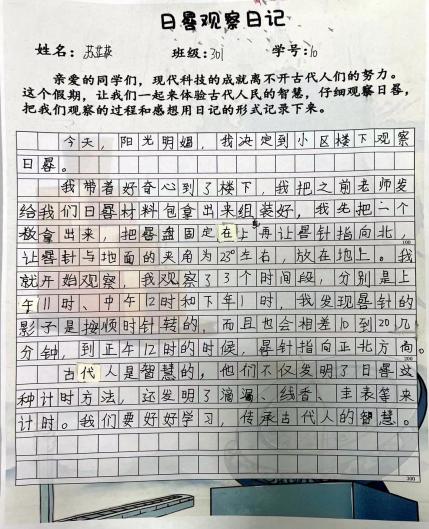 日晷观察日记
姓名：苏芷莜 班级：301 学号：10
亲爱的同学们，现代科技的成就离不开古代人们的努力。
这个假期，让我们一起来体验古代人民的智慧，仔细观察日晷，
把我们观察的过程和感想用日记的形式记录下来。
今天，阳光明媚，我决定到小区楼下观察
日晷。
我带着好奇心到了楼下，我把之前老师发
给我们日晷材料包拿出来组装好，我先把一个
板拿出来，把晷盘固定在上再让晷针指向北，
100
让晷针与地面的夹角为23°左右，放在地上。我
就开始观察，我观察了3个时间段，分别是上
午11时、中午12时和下年1时，我发现晷针的
影子是按顺时针转的，而且也会相差10到20几
分钟，到正午12时的时候，晷针指向正北方向。
200
古代人是智慧的，他们不仅发明了日晷这
种计时方法，还发明了滴漏、线香、圭表等来
计时。我们要好好学习，传承古代人的智慧。
300